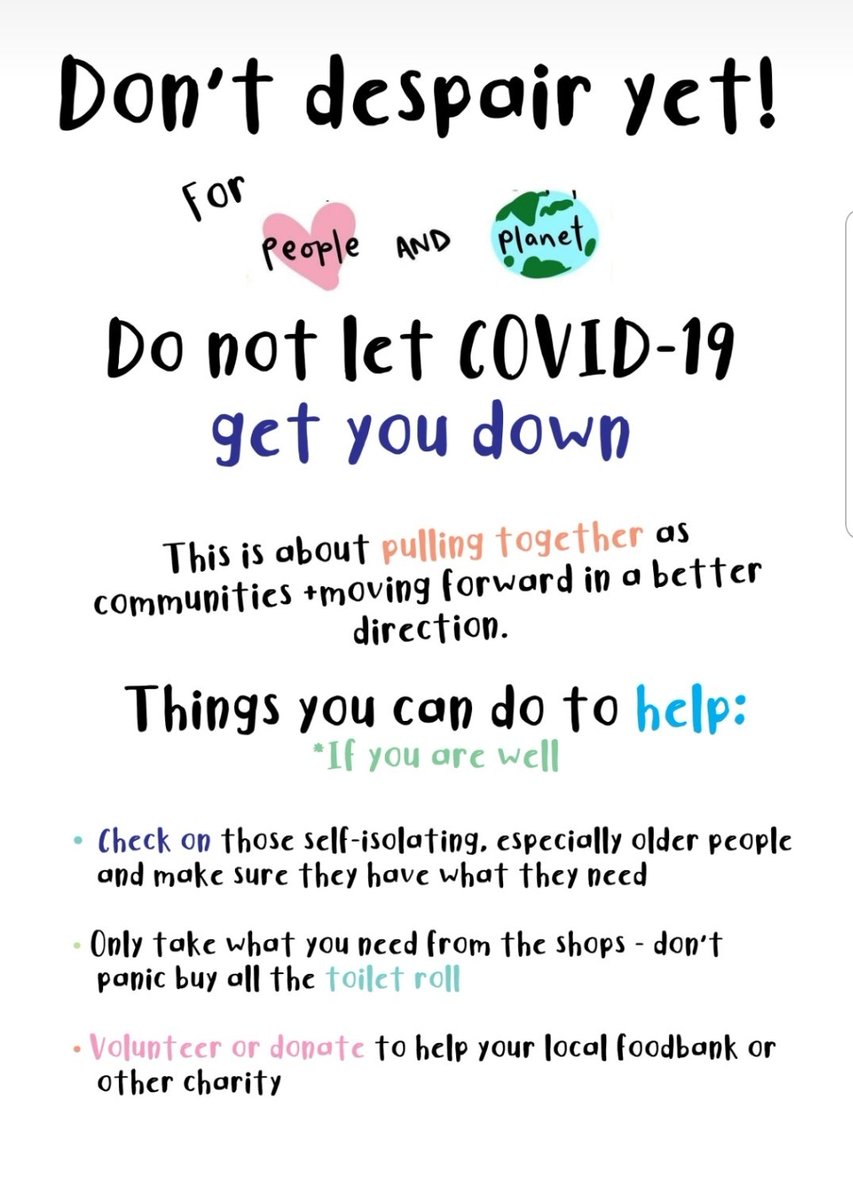 Don't despair yet!
For
people AND planet
Do not let COVID-19
get you down
This is about pulling together as
communities +moving forward in a better
direction.
Things you can do to help:
*If you are well
• Check on those self-isolating, especially older people
and make sure they have what they need
• Only take what you need from the shops - don't
panic buy all the toilet roll
• Volunteer or donate to help your local foodbank or
other charity